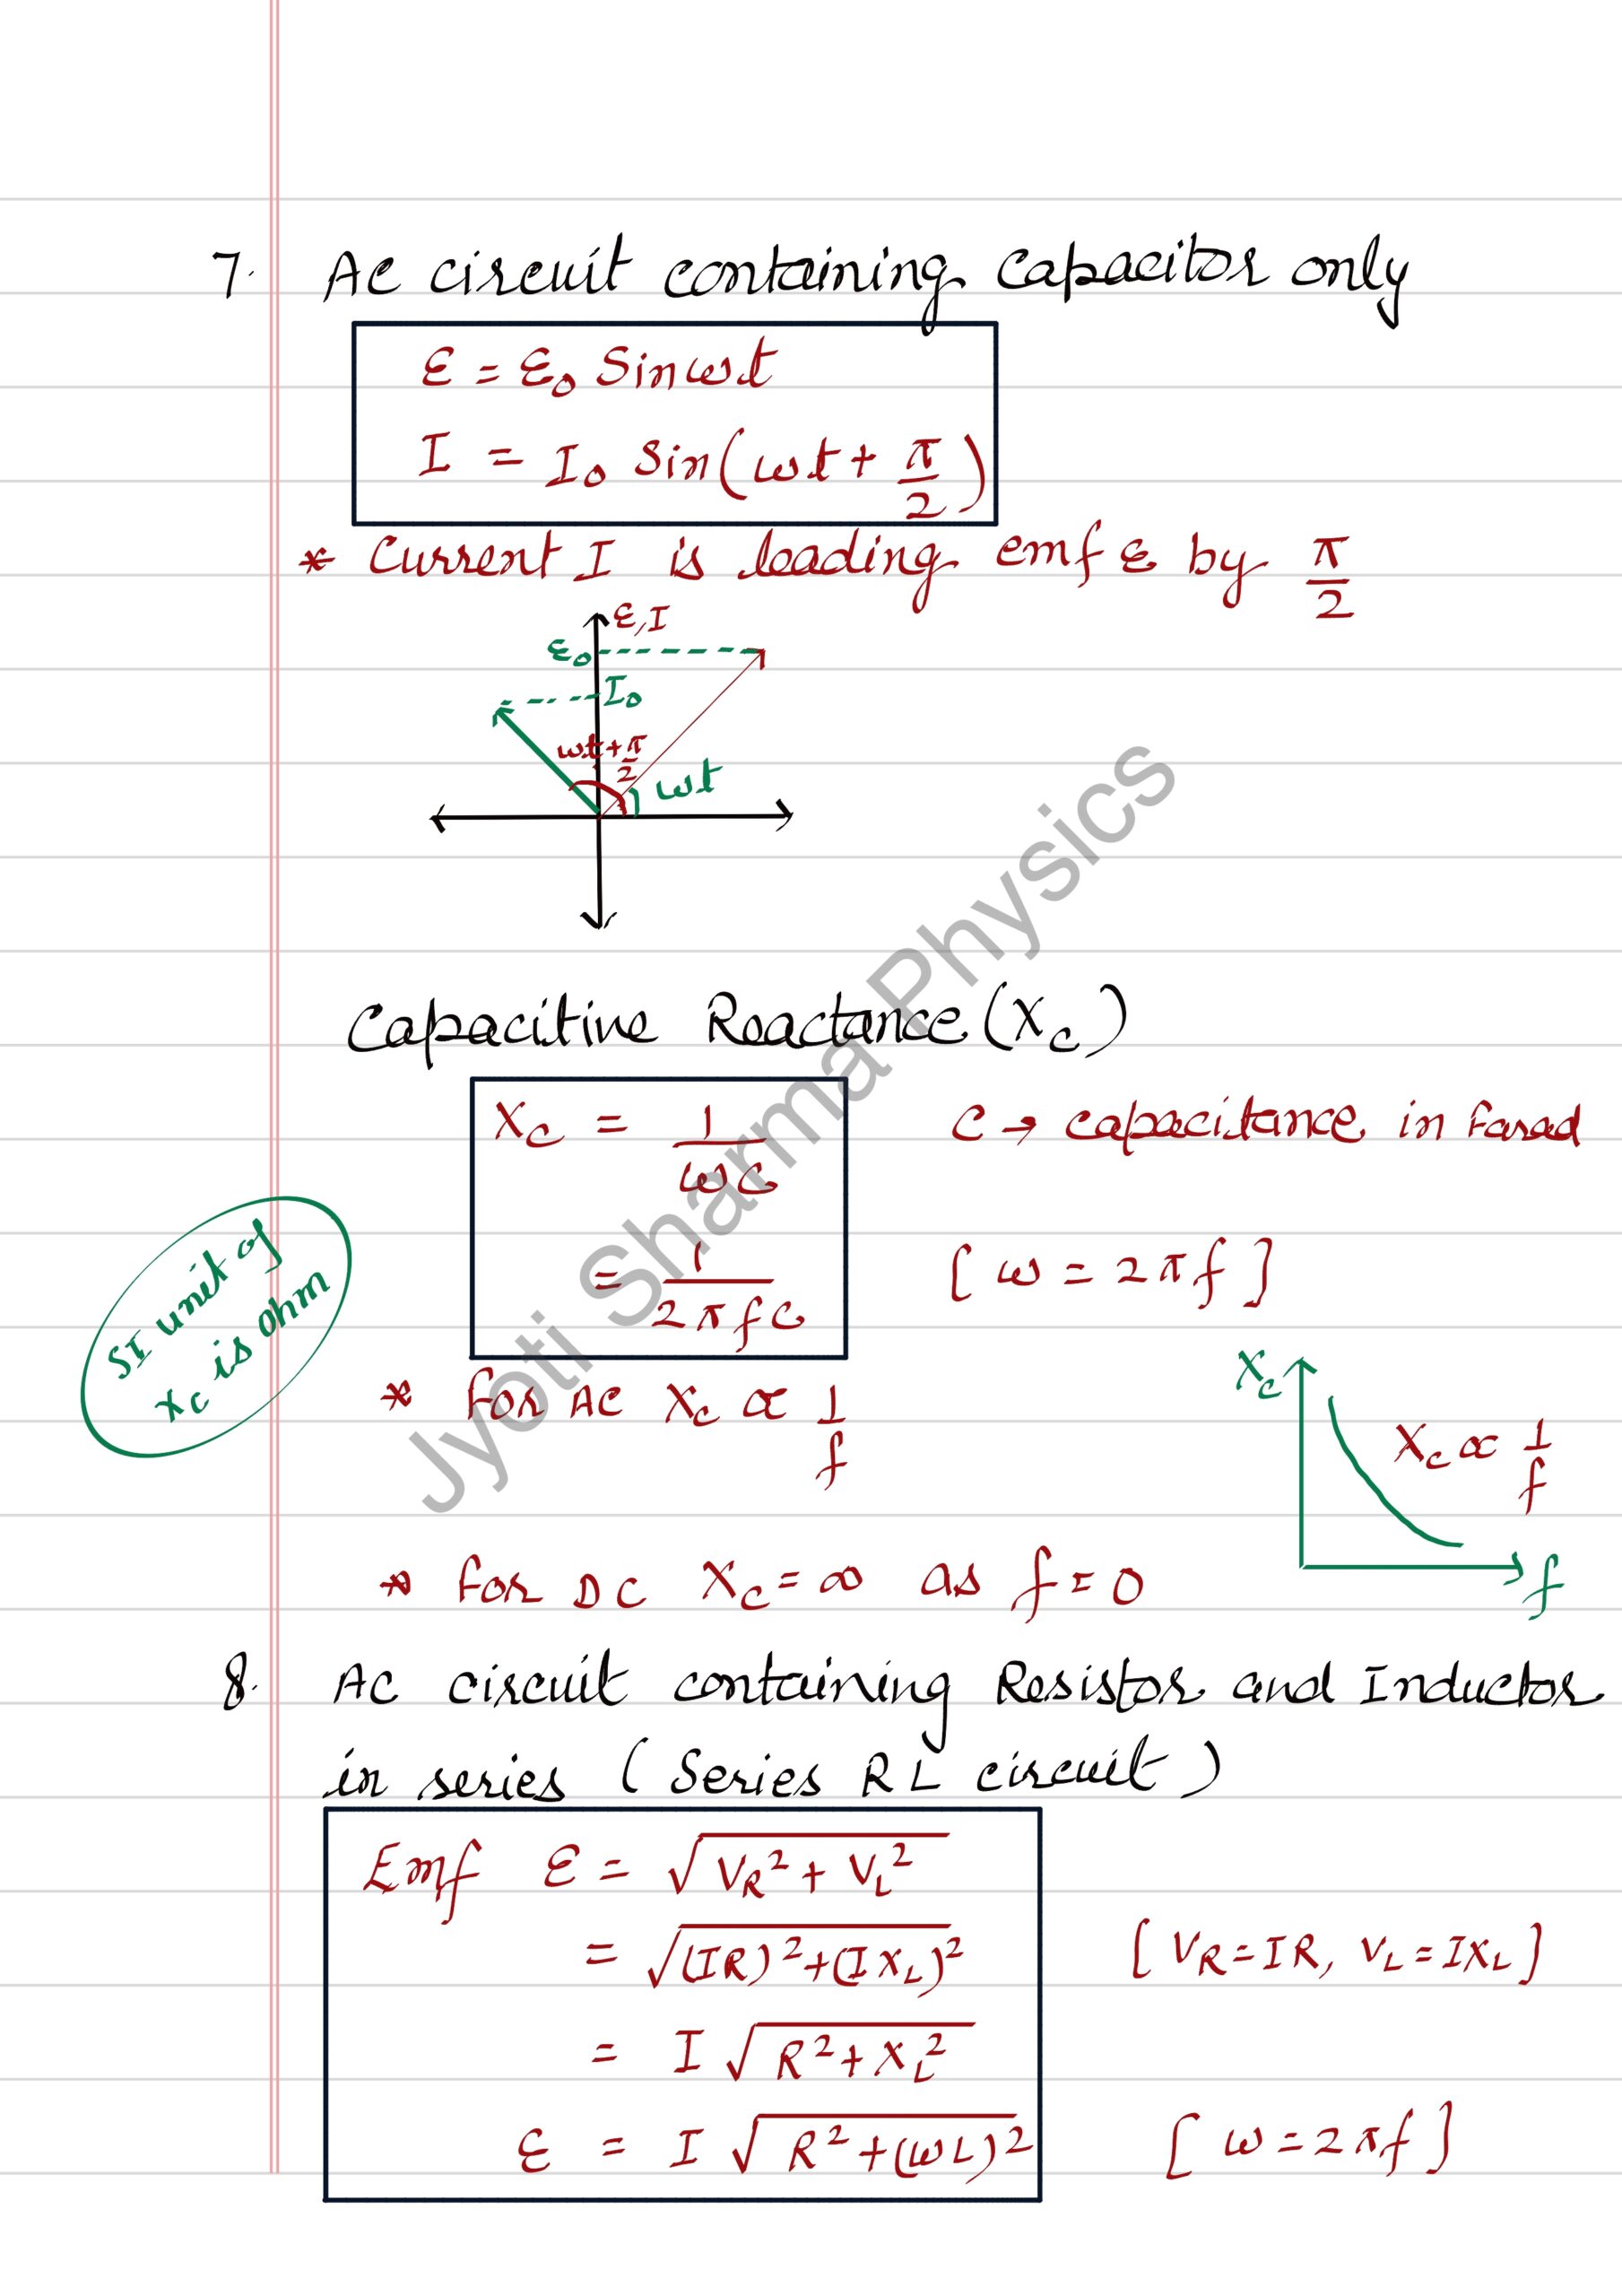 7. AC circuit containing capacitor only
ε = ε₀ Sinωt
I = I₀ Sin(ωt + π/2)
* Current I is leading emf ε by π/2
ε, I
ε₀
I₀
ωt + π/2
ωt
Capacitive Reactance (X_C)
X_C = 1/ωC
C → capacitance in Farad
= 1/2πfC
[ω = 2πf]
SI unit of
X_C is ohm
* For AC X_C ∝ 1/f
X_C
X_C ∝ 1/f
f
* For DC X_C = ∞ as f = 0
8. AC circuit containing Resistor and Inductor
in series (Series RL circuit)
Emf ε = √(V_R² + V_L²)
= √((IR)² + (IX_L)²)
[V_R = IR, V_L = IX_L]
= I √(R² + X_L²)
ε = I √(R² + (ωL)²)
[ω = 2πf]
Jyoti Sharma Physics